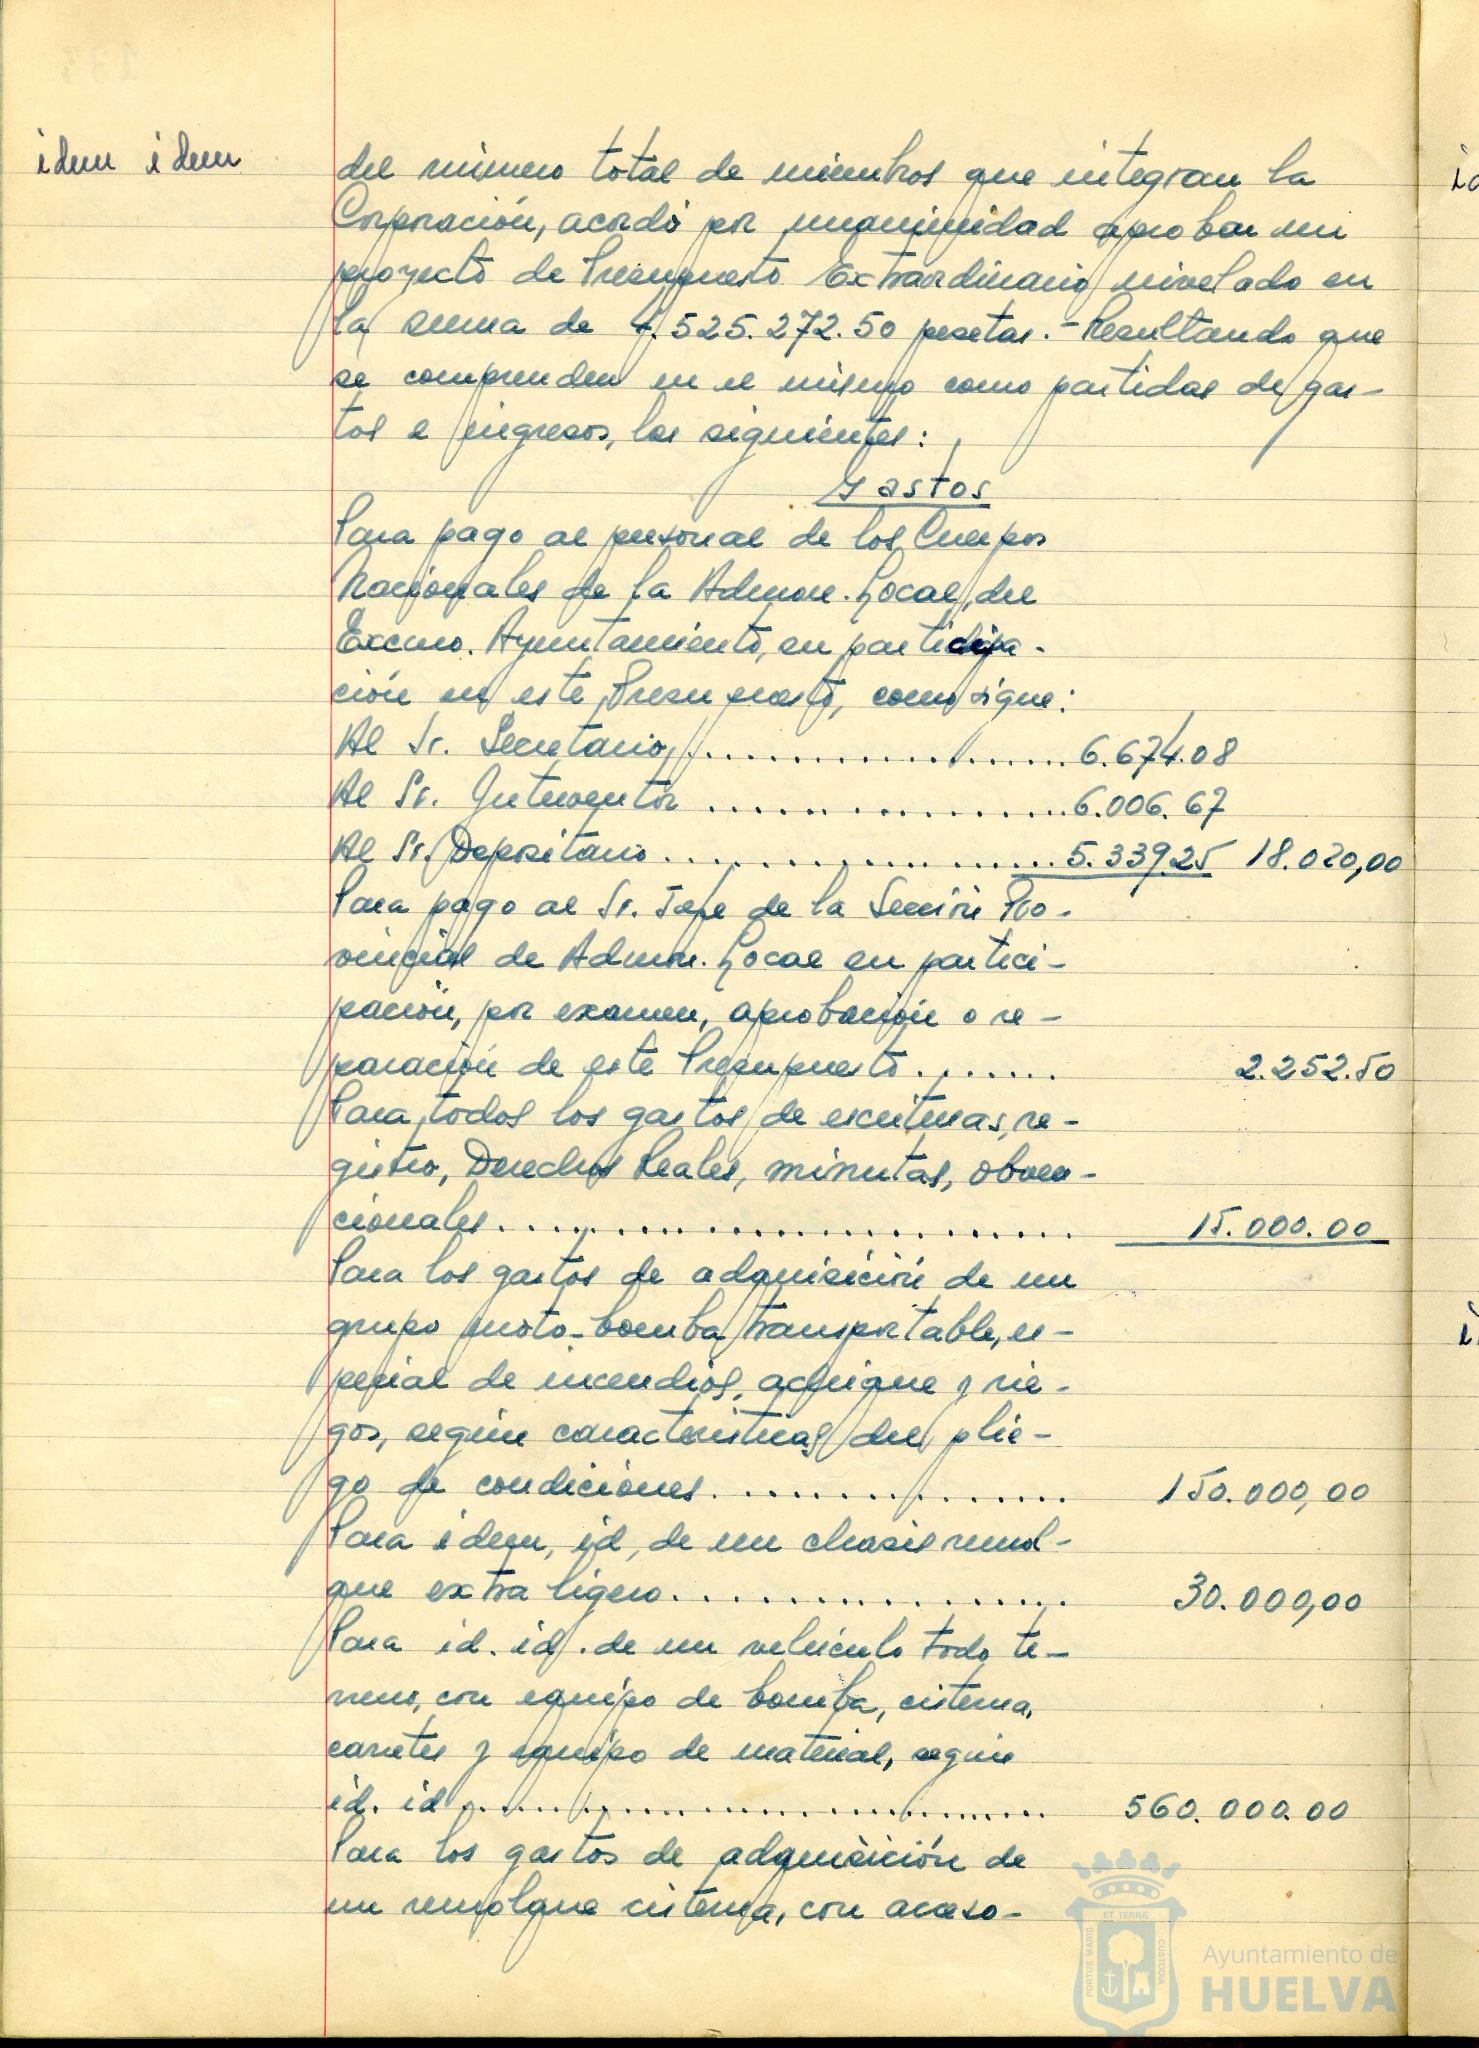 idem idem
del número total de miembros que integran la
Corporación, acordó por unanimidad aprobar un
proyecto de Presupuesto Extraordinario nivelado en
la suma de 1.525.272.50 pesetas.- Resultando que
se comprenden en el mismo como partidas de gas-
tos e ingresos, las siguientes:
Gastos
Para pago al personal de los Cuerpos
Nacionales de la Admon. Local, del
Excmo. Ayuntamiento, en participa-
ción en este Presupuesto, como sigue:
Al Sr. Secretario................... 6.674.08
Al Sr. Interventor ................. 6.006.67
Al Sr. Depositario.................. 5.339.25 18.020,00
Para pago al Sr. Jefe de la Sección Pro-
vincial de Admon. Local en partici-
pación, por examen, aprobación o re-
paración de este Presupuesto........ 2.252.50
Para todos los gastos de escrituras, re-
gistro, Derechos Reales, minutas, obven-
cionales........................... 15.000.00
Para los gastos de adquisición de un
grupo moto-bomba transportable, es-
pecial de incendios, achique y rie-
gos, según características del plie-
go de condiciones................ 150.000,00
Para idem, id, de un chasis remol-
que extra ligero.................. 30.000,00
Para id. id. de un vehículo todo te-
rreno, con equipo de bomba, cisterna,
carretes y equipo de material, según
id. id............................. 560.000.00
Para los gastos de adquisición de
un remolque cisterna, con acceso-
PORTUS MARIS
ET TERRÆ
CUSTODIA
Ayuntamiento de
HUELVA